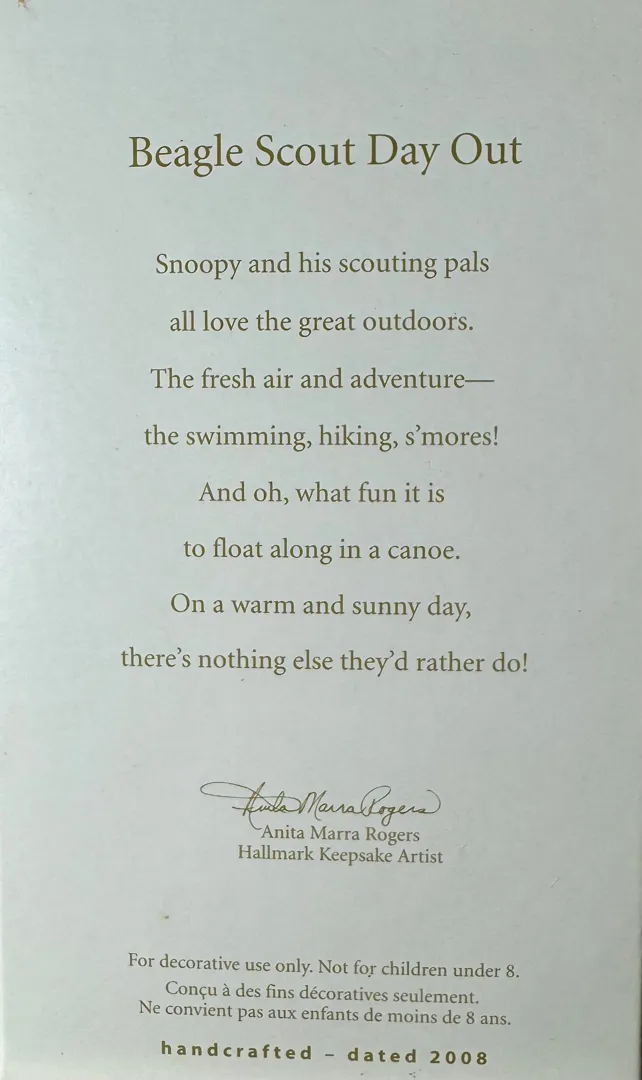 Beagle Scout Day Out
Snoopy and his scouting pals
all love the great outdoors.
The fresh air and adventure—
the swimming, hiking, s’mores!
And oh, what fun it is
to float along in a canoe.
On a warm and sunny day,
there’s nothing else they’d rather do!
Anita Marra Rogers
Anita Marra Rogers
Hallmark Keepsake Artist
For decorative use only. Not for children under 8.
Conçu à des fins décoratives seulement.
Ne convient pas aux enfants de moins de 8 ans.
handcrafted – dated 2008